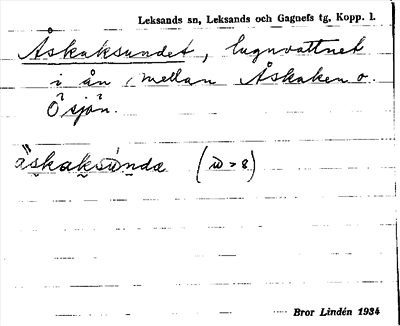 Leksands sn, Leksands och Gagnefs tg, Kopp. l.
Åskaksundet, lugnvattnet
i ån, mellan Åskaken o.
Ösjön.
åskaksunda
Bror Lindén 1934